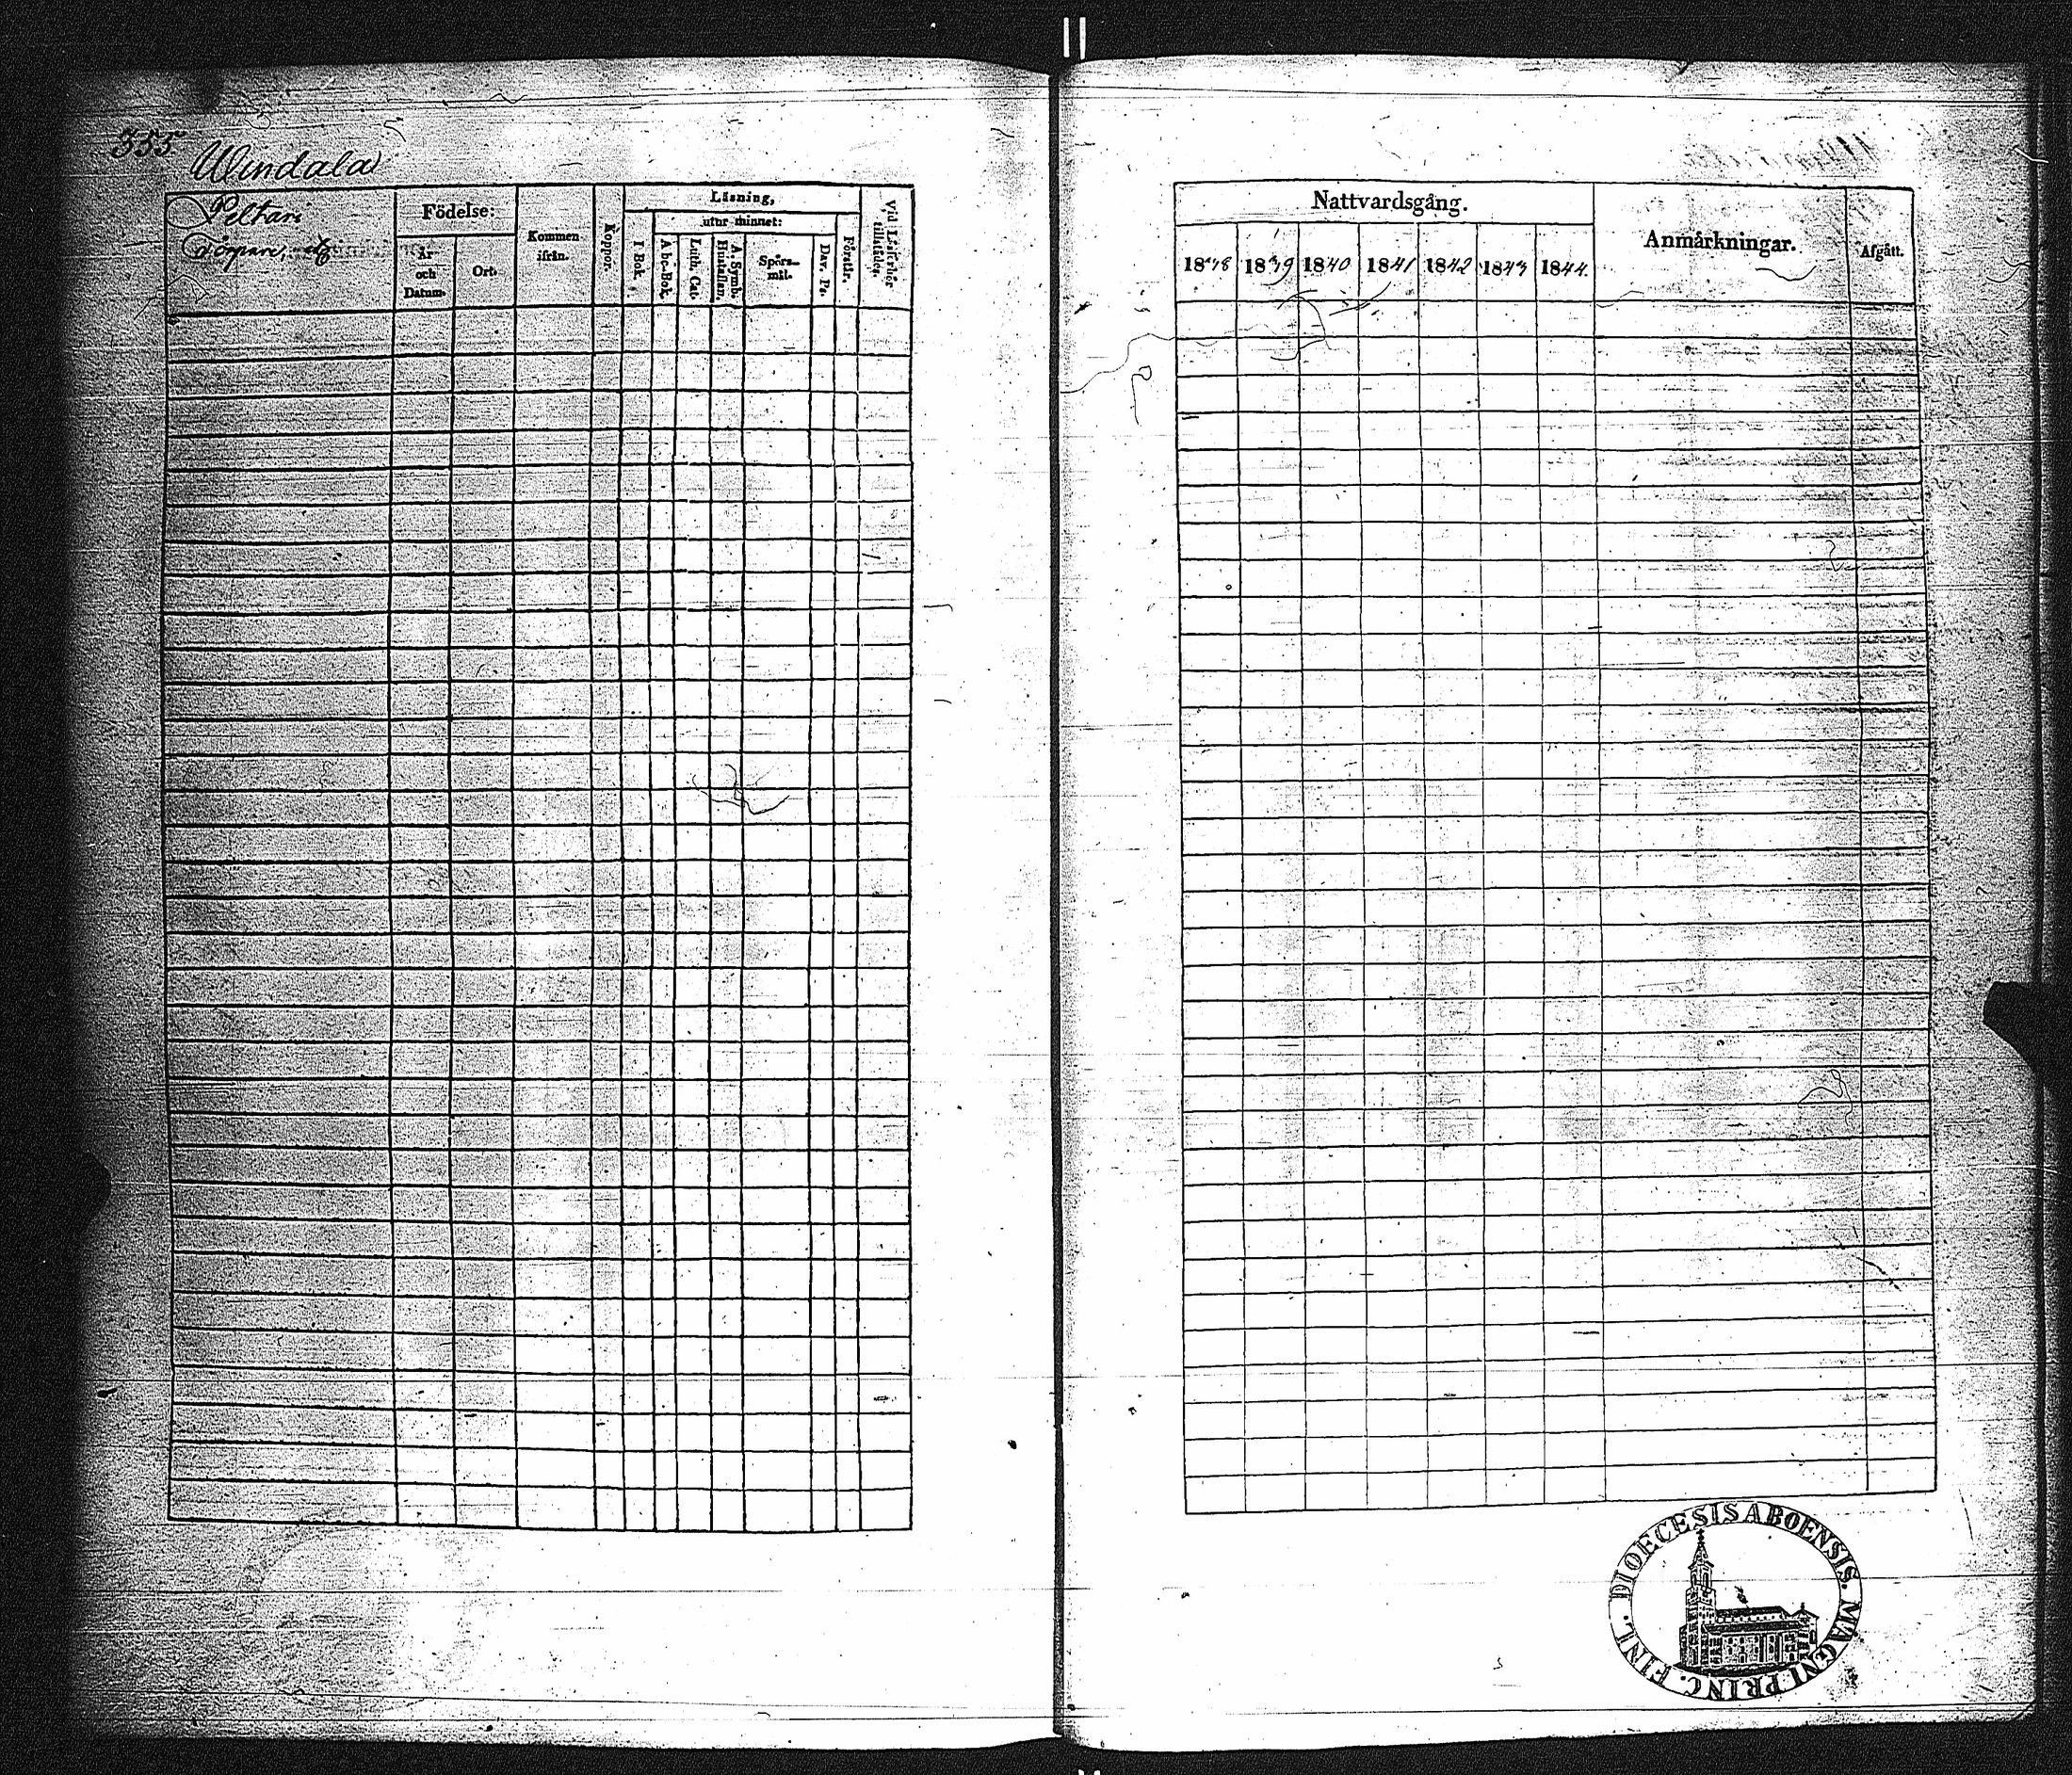 355
Windala
Peltari
Födelse:
År och Datum.
Ort.
Kommen ifrån.
Koppor.
Läsning,
I Bok.
utur minnet:
A b c-Bok.
Luth. Cat.
A. Symb. Hustaflan.
Spörsmål.
Dav. Ps.
Förstår.
Vid Läseförhör tillstädes.
Nattvardsgång.
1838 1839 1840 1841 1842 1843 1844.
Anmärkningar.
Afgått.
DIOECESIS ABOENSIS. MAGNI PRINC. FINL.